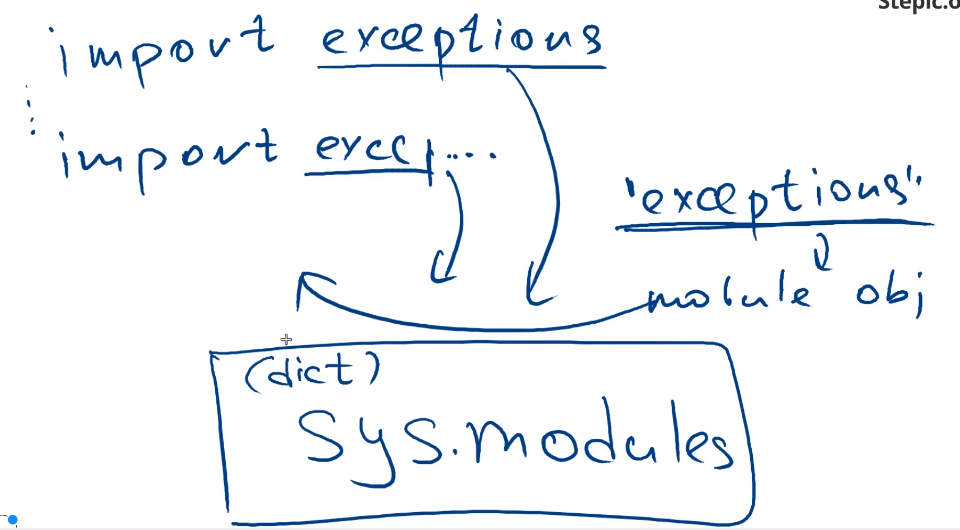 Stepic.o
import exceptions
import excep...
'exceptions'
module obj
(dict)
sys.modules